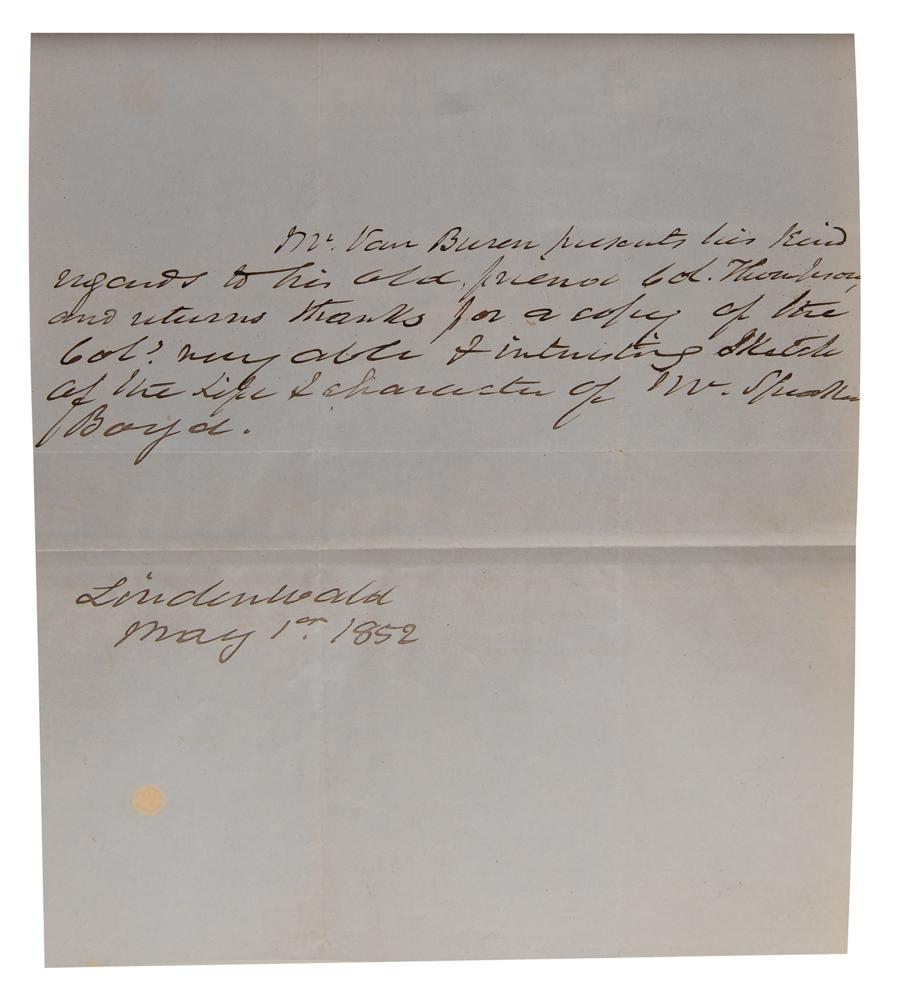 Mr. Van Buren presents his kind
regards to his old friend Col. Thompson,
and returns thanks for a copy of the
Cols. very able & interesting Sketch
of the Life & character of Mr. Speaker
Boyd.
Lindenwald
May 1st. 1852